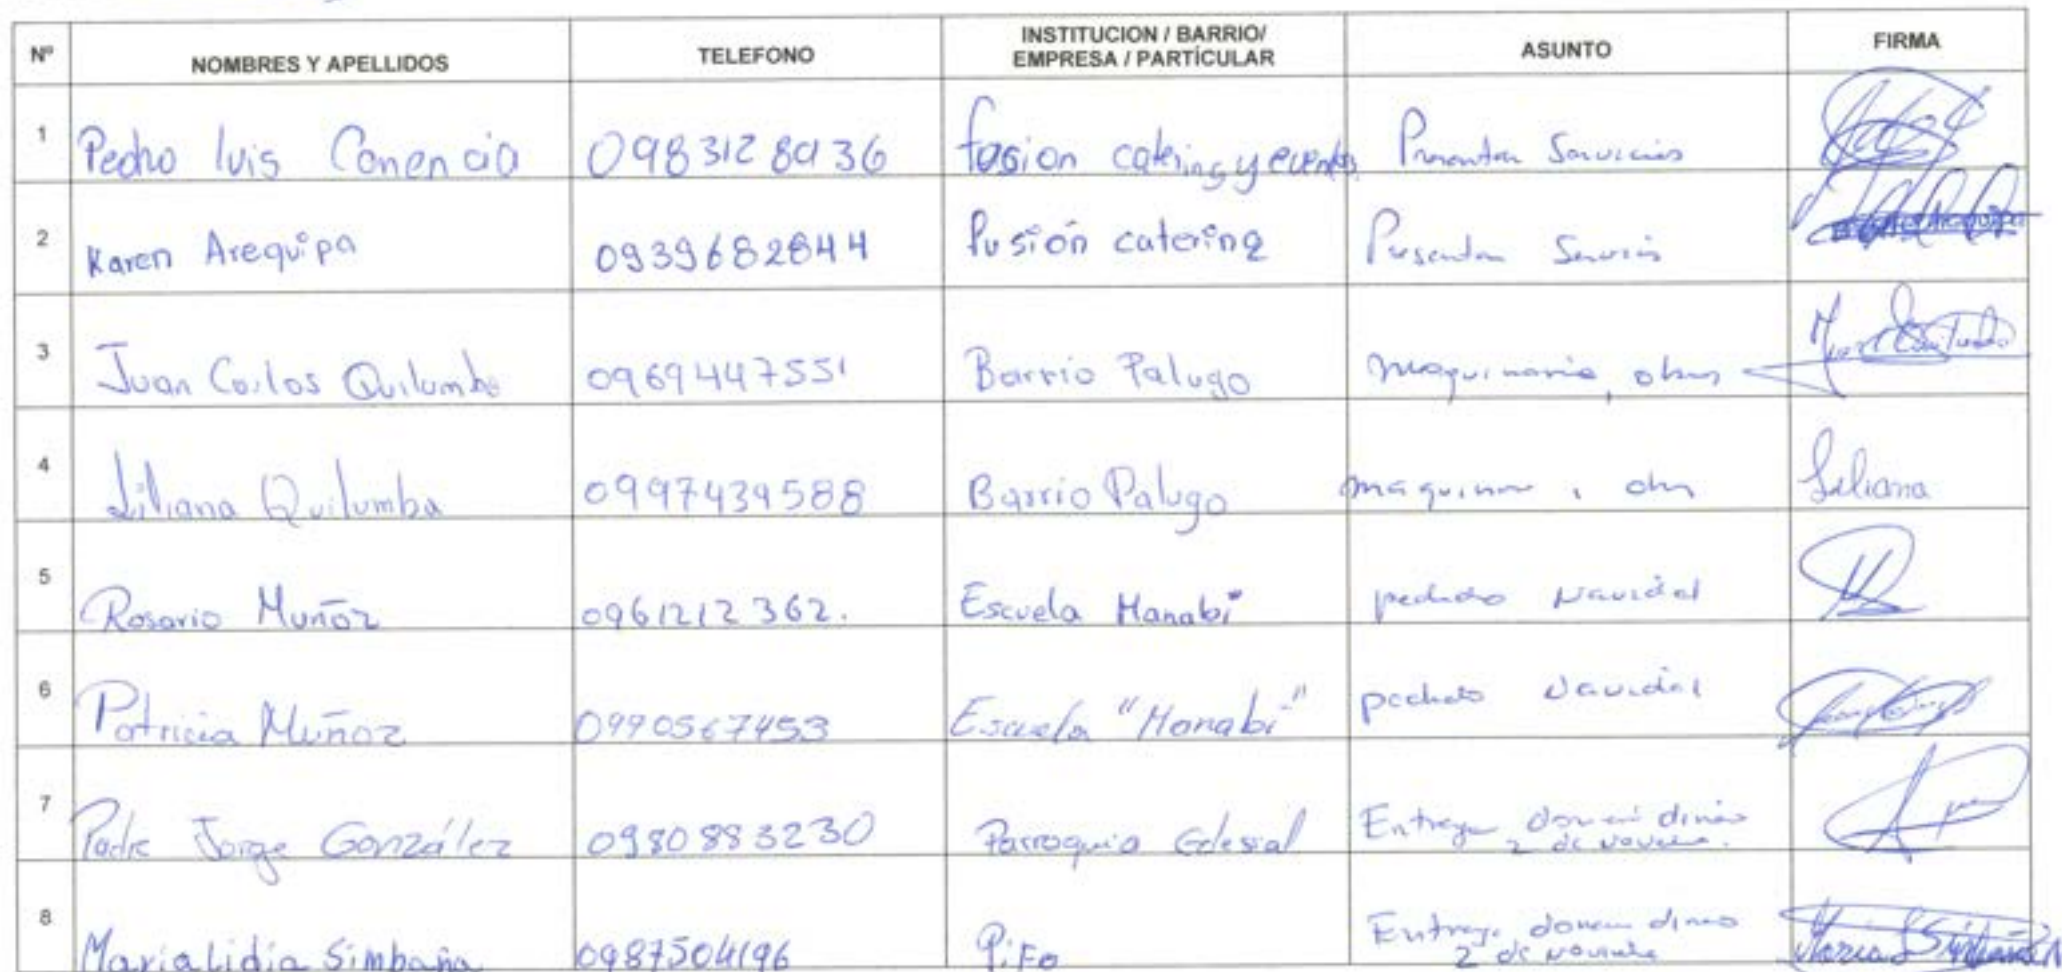 Nº NOMBRES Y APELLIDOS TELEFONO INSTITUCION / BARRIO/ EMPRESA / PARTÍCULAR ASUNTO FIRMA
1 Pedro luis 0983128936 fusion catering y eventos Presentar Servicios
2 Karen Arequipa 0939682844 fusión catering Presentar Servicios
3 Juan Carlos Quilumba 0969447551 Barrio Palugo maquinaria, obras
4 Liliana Quilumba 0997439588 Barrio Palugo Liliana
5 Rosario Muñoz 0961212362. Escuela Manabi pedido Navidad
6 Patricia Muñoz 0990567453 Escuela "Manabi" pedido Navidad
7 Padre Jorge González 0980883230 Parroquia Eclesial Entrega
2 de
8 Maria Lidia Simbaña 0987504196 Pifo Entrega
2 de